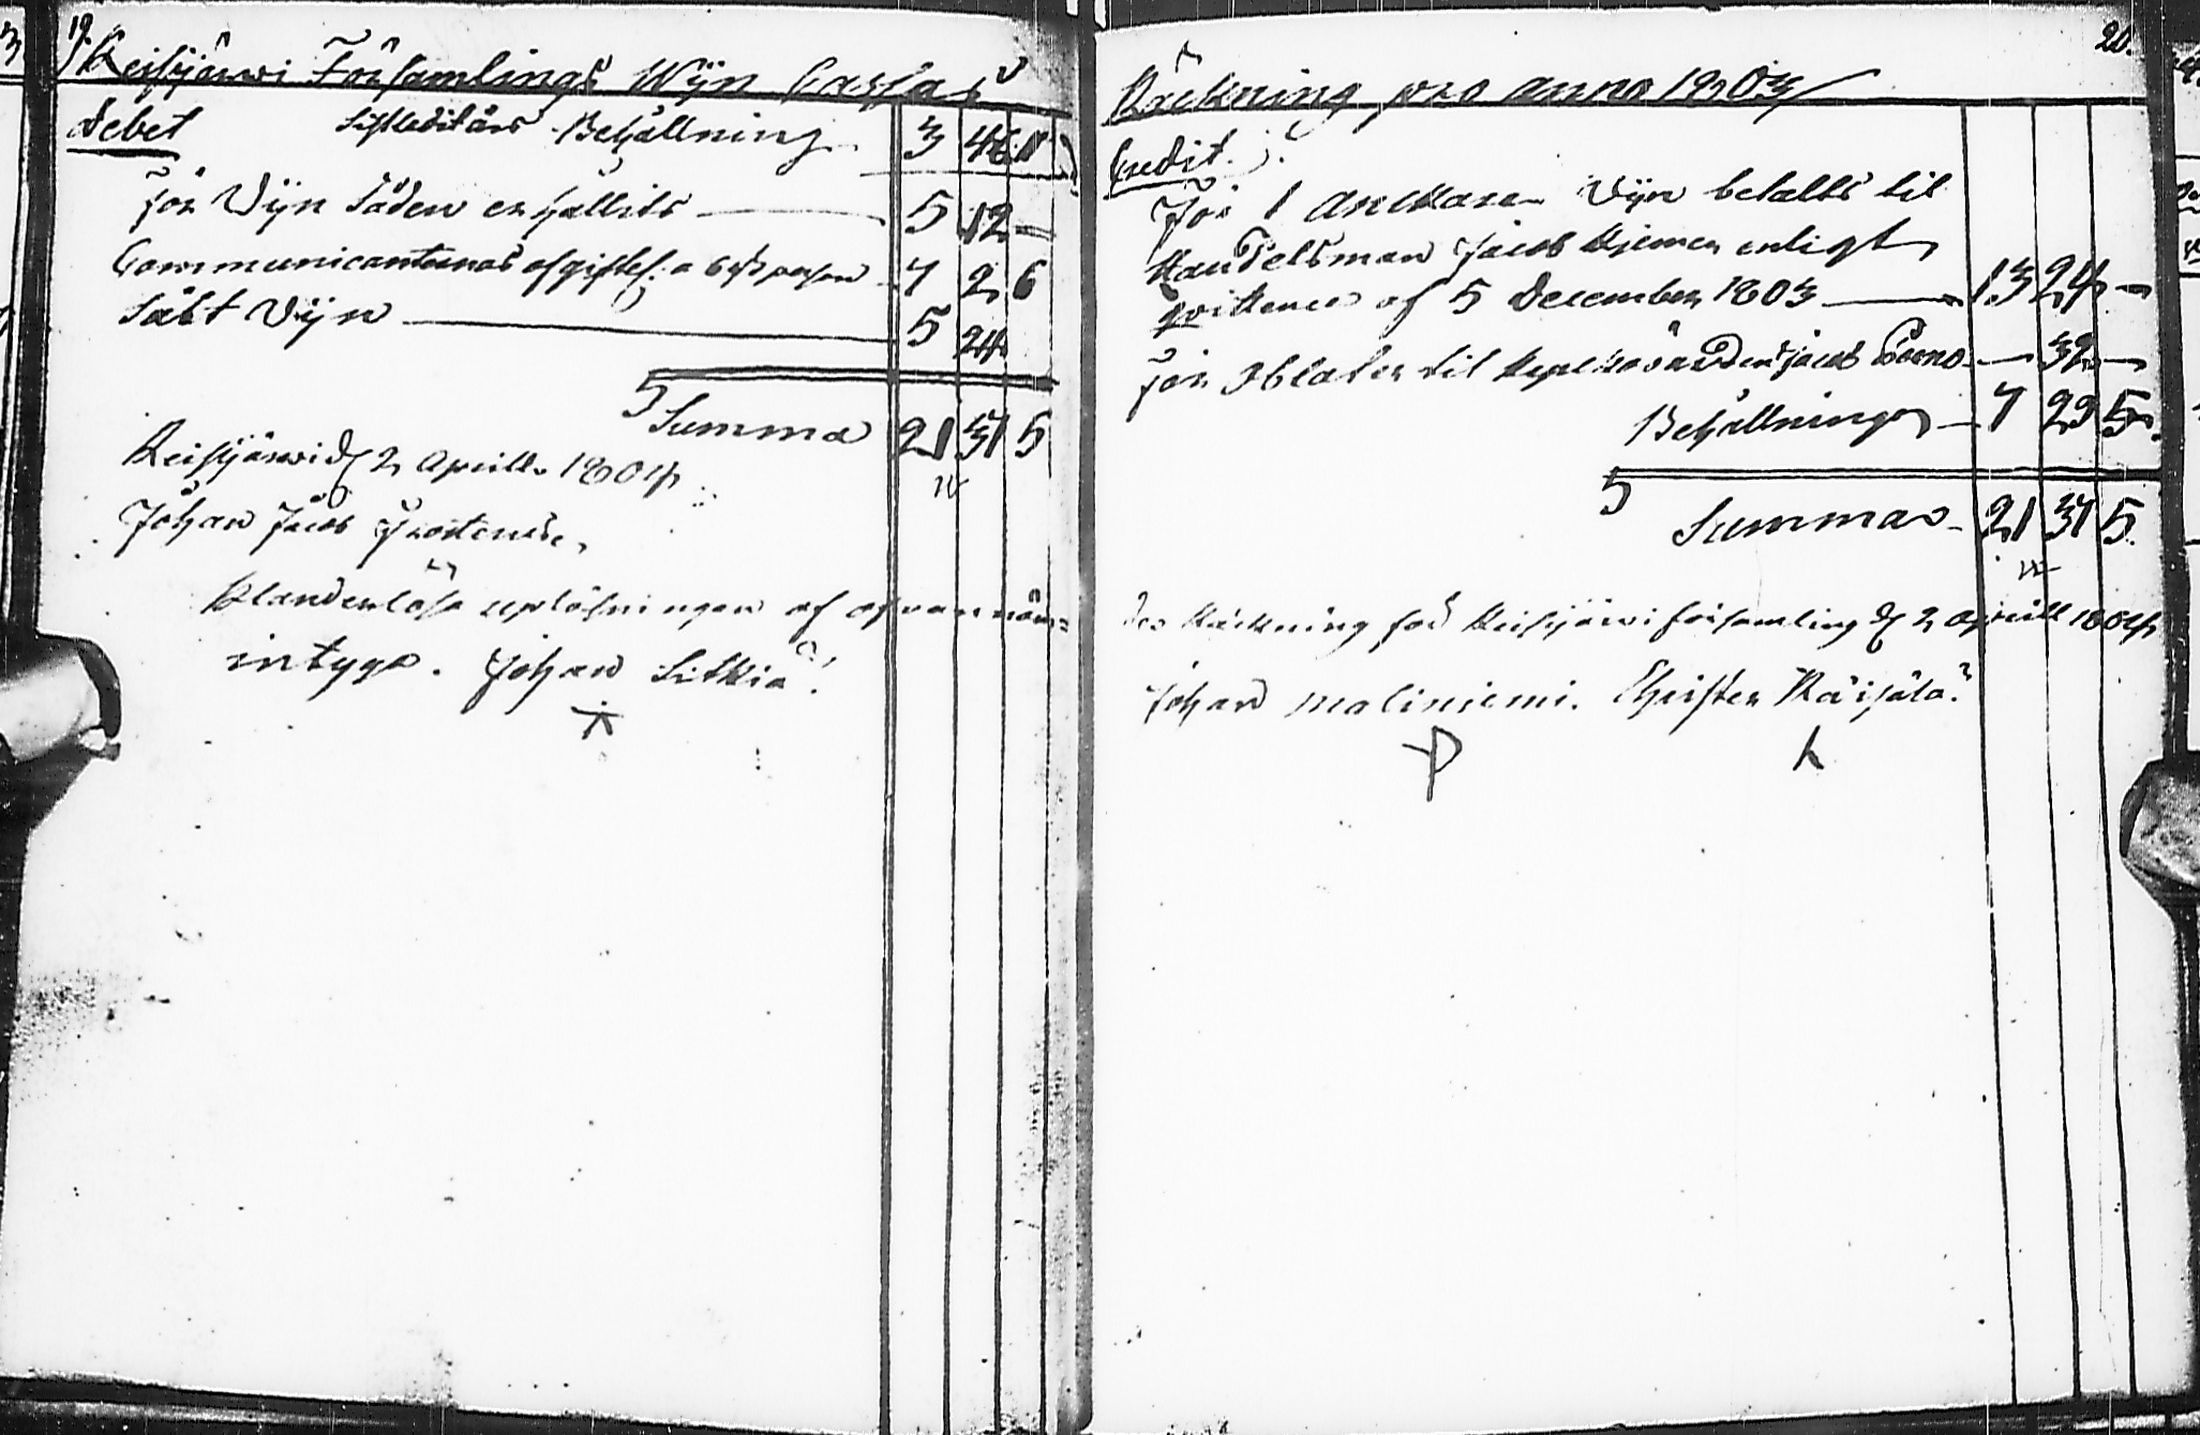 19.
Reisjärwi Församlings Wijn Cassas
Debet Sistledit års Behållning 3 46 11
För Wijn Säden erhållits 5 12 —
Communicanternas afgifter a 6 person 7 2 6
Sålt Wijn 5 24
Summa 21 37 5
Reisjärwi d 2 Aprill 1804
Johan Jacob
Klanderlösa uplösningen af ofvannäm=
intyga. Johan Sitkiä.
20.
Räckning pro anno 1803
Credit.
För 1 Anckare Wijn betalts til
Handelsman Jacob Kjemer enligt
qvittence af 5 December 1803 13 24 —
För Oblater til Jacob — 32 —
Behållning 7 29 5
Summa 21 37 5
des Räckning för Reisjärwi församling d 2 Aprill 1804
Johan Maliniemi. Christer Räisälä.